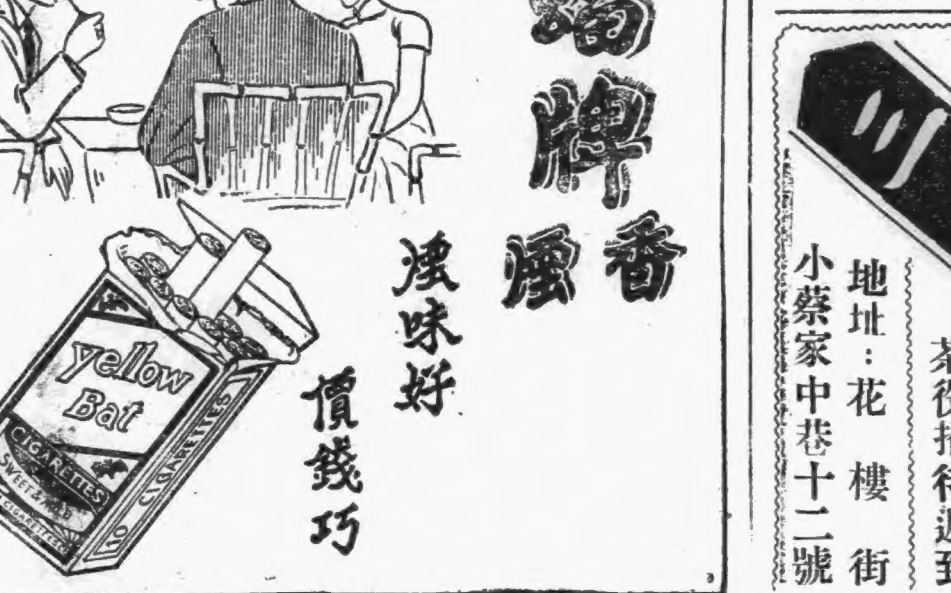 牌
香煙
煙味好
價錢巧
yellow
Bat
CIGARETTES
SWEET & MILD
CIGARETTES
10 CIGARETTES
川
地址：花樓街
小蔡家中巷十二號